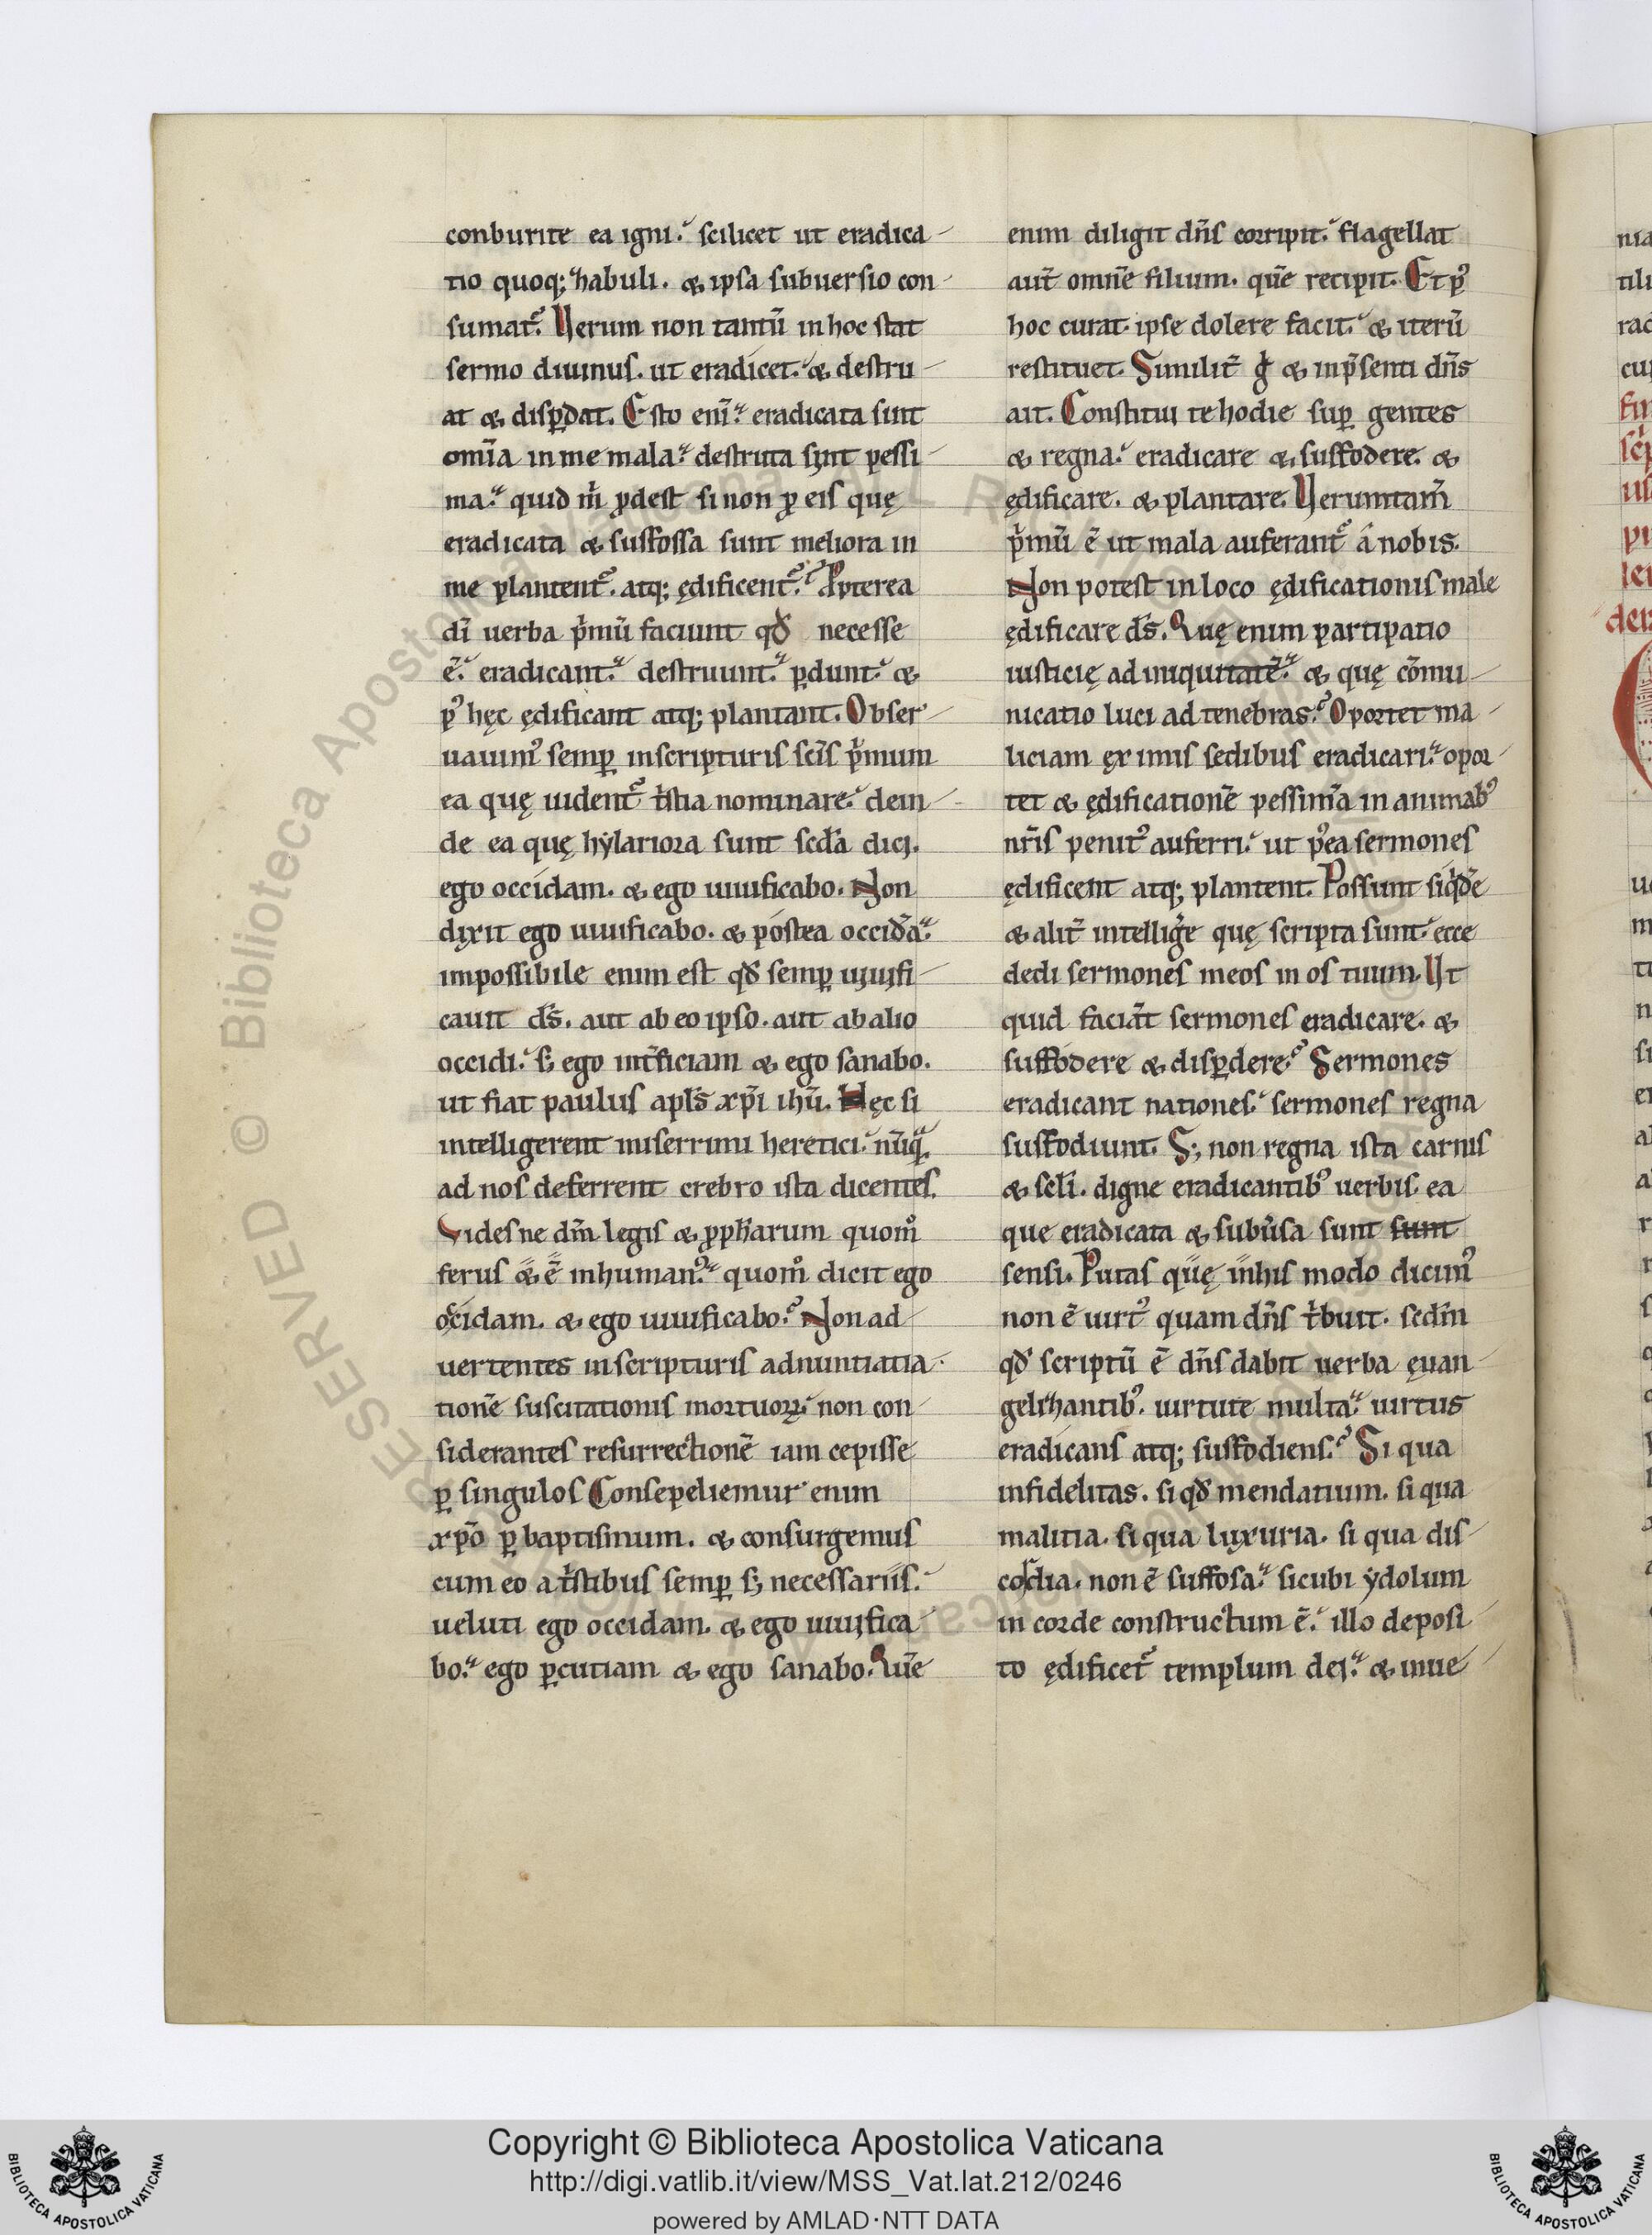 conburite ea igni. scilicet ut eradica-
tio quoq; habuli. & ipsa subuersio con-
sumat᷒. Verum non tantū in hoc stat
sermo diuinus. ut eradicet. & destru-
at & disꝑdat. Esto enī. eradicata sint
omīa in me mala. destruta sint pessi-
ma. quid m̄ ꝓdest si non ꝓ eis quę
eradicata & suffossa sunt meliora in
me plantent᷒. atq; ędificent᷒. Ꝓpterea
dī uerba p̄mū faciunt qđ necesse
ē. eradicant. destruunt. ꝑdunt. &
pꝰ hęc ędificant atq; plantant. Obser-
uauimꝰ semꝑ in scripturis scīs p̄mum
ea quę uident᷒ t̄stia nominare. dein-
de ea quę hẏlariora sunt scđa dici.
ego occidam. & ego uiuificabo. Non
dixit ego uiuificabo. & postea occidā.
impossibile enim est qđ semꝑ uiuifi-
cauit d̄s. aut ab eo ipso. aut ab alio
occidi. s; ego int̄ficiam & ego sanabo.
ut fiat paulus apl̄s xp̄i ihū. Hęc si
intelligerent miserrimi heretici. nūq̄.
ad nos deferrent crebro ista dicentes.
Vides ne dm̄ legis & ꝓph̄arum quom̊
ferus & ē inhumanꝰ. quom̊ dicit ego
occidam. & ego uiuificabo. Non ad-
uertentes in scripturis adnuntiatia-
tionē suscitationis mortuoꝝ. non con-
siderantes resurrectionē iam cepisse
ꝑ singulos Consepeliemur enim
xp̄o ꝑ baptismum. & consurgemus
cum eo a t̄stibus semꝑ s; necessariis.
ueluti ego occidam. & ego uiuifica-
bo. ego ꝑcutiam & ego sanabo. Quē
enim diligit dn̄s corripit. flagellat
aut̄ omnē filium. quē recipit. Et pꝰ
hoc curat. ipse dolere facit. & iterū
restituet. Similit̄ g̊ & in p̄senti dn̄s
ait. Constitui te hodie suꝑ gentes
& regna. eradicare & suffodere. &
ędificare. & plantare. Verumtam̄
p̄mū ē ut mala auferant᷒ a nobis.
Non potest in loco ędificationis male
ędificare d̄s. Quę enim partipatio
iusticię ad iniquitatē. & quę cōmu-
nicatio luci ad tenebras. Oportet ma-
liciam ęx imis sedibus eradicari. opor-
tet & ędificationē pessimā in animabꝰ
nr̄is penitꝰ auferri. ut pꝰea sermones
ędificent atq; plantent. Possunt siq̄dē
& alit̄ intelliḡe quę scripta sunt. ecce
dedi sermones meos in os tuum. Ut
quid faciāt sermones eradicare. &
suffodere & disꝑdere. Sermones
eradicant nationes. sermones regna
suffodiunt. S; non regna ista carnis
& scl̄i. digne eradicantibꝰ uerbis. ea
que eradicata & subūsa sunt sunt
sensi. Putas quę in his modo dicimꝰ
non ē uirtꝰ quam dn̄s t̄buit. sedm̄
qđ scriptū ē dn̄s dabit uerba ęuan-
gelizantibꝰ. uirtute multa. uirtus
eradicans atq; suffodiens. Si qua
infidelitas. si qđ mendatium. si qua
malitia. si qua luxuria. si qua dis-
cordia. non ē suffosa. sicubi ẏdolum
in corde constructum ē. illo deposi-
to ędificet᷒ templum dei. & inue
Copyright © Biblioteca Apostolica Vaticana
http://digi.vatlib.it/view/MSS_Vat.lat.212/0246
powered by AMLAD·NTT DATA
BIBLIOTECA APOSTOLICA VATICANA
BIBLIOTECA APOSTOLICA VATICANA